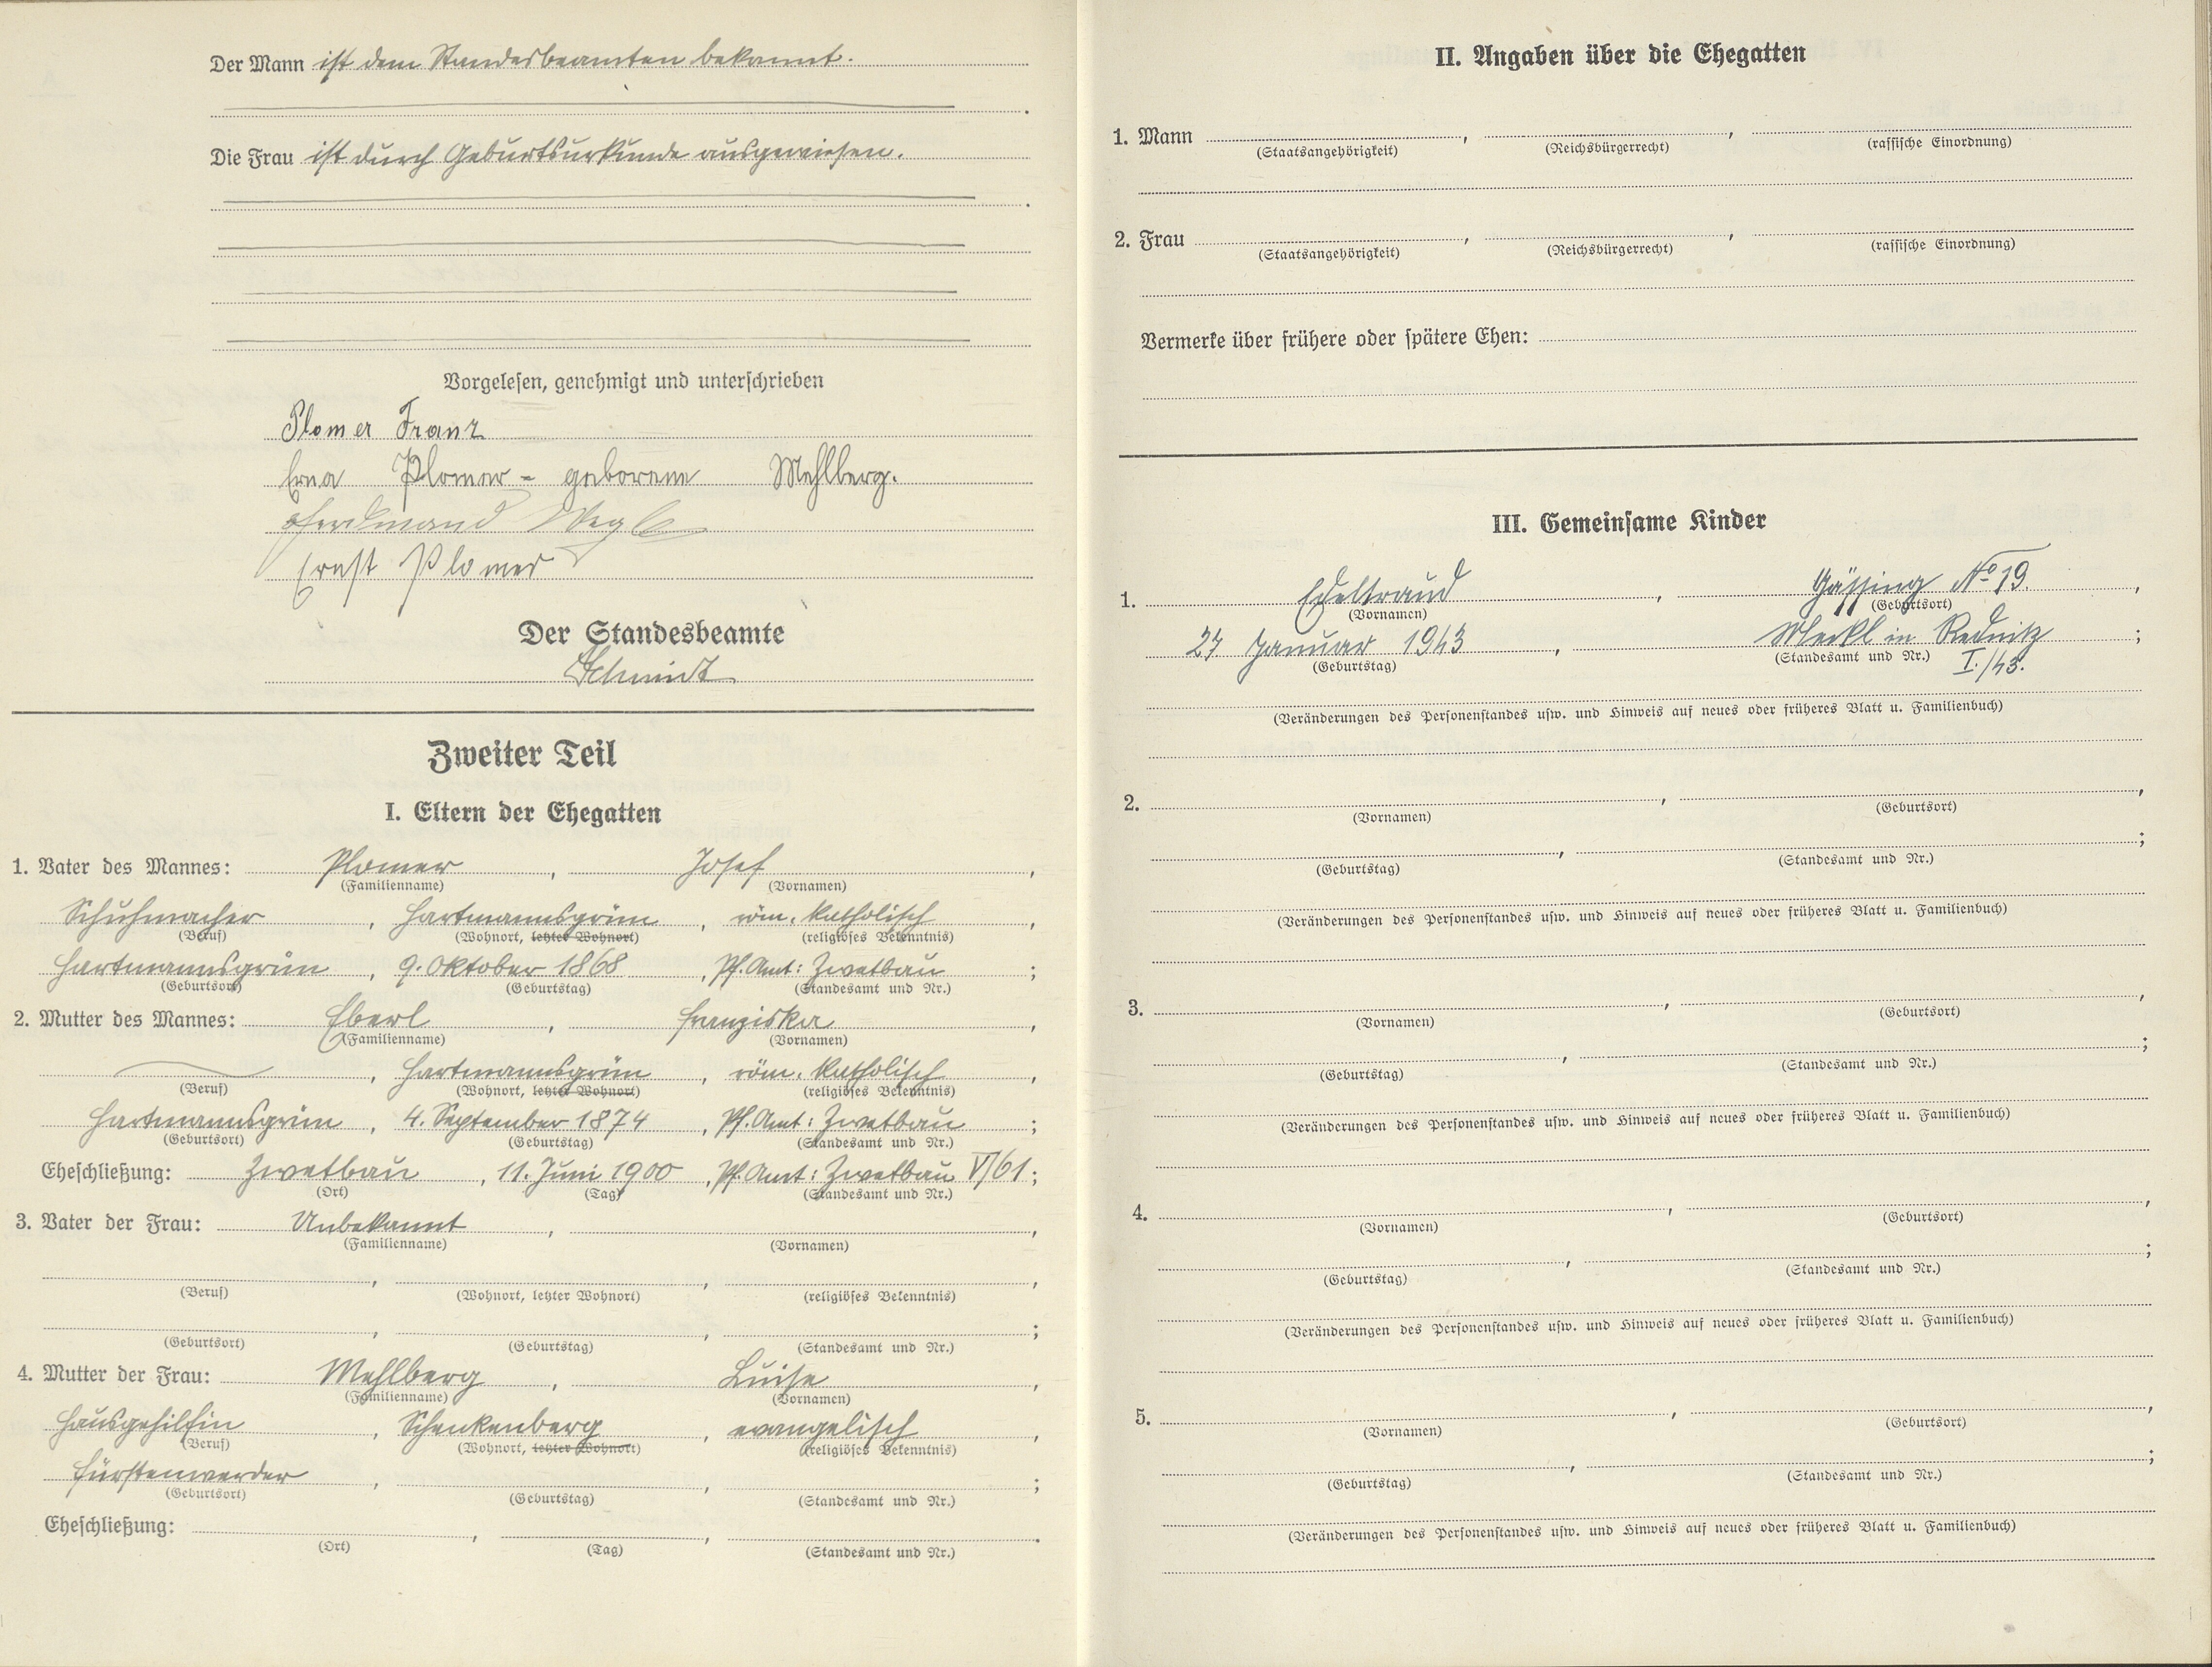 Der Mann ist dem Standesbeamten bekannt.
Die Frau ist durch Geburtsurkunde ausgewiesen.
Vorgelesen, genehmigt und unterschrieben
Plomer Franz
Erna Plomer - geborene Mehlberg.
Ferdinand
Ernst Plomer
Der Standesbeamte
Schmidt
Zweiter Teil
I. Eltern der Ehegatten
1. Vater des Mannes: Plomer, Josef,
(Familienname) (Vornamen)
Schuhmacher, Hartmannsgrün, röm. katholisch,
(Beruf) (Wohnort, letzter Wohnort) (religiöses Bekenntnis)
Hartmannsgrün, 9. Oktober 1868, Pf. Amt: Zwetbau;
(Geburtsort) (Geburtstag) (Standesamt und Nr.)
2. Mutter des Mannes: Eberl, Franziska,
(Familienname) (Vornamen)
, Hartmannsgrün, röm. katholisch,
(Beruf) (Wohnort, letzter Wohnort) (religiöses Bekenntnis)
Hartmannsgrün, 4. September 1874, Pf. Amt: Zwetbau;
(Geburtsort) (Geburtstag) (Standesamt und Nr.)
Eheschließung: Zwetbau, 11. Juni 1900, Pf. Amt: Zwetbau VI/61;
(Ort) (Tag) (Standesamt und Nr.)
3. Vater der Frau: Unbekannt, ,
(Familienname) (Vornamen)
, , ,
(Beruf) (Wohnort, letzter Wohnort) (religiöses Bekenntnis)
, , ;
(Geburtsort) (Geburtstag) (Standesamt und Nr.)
4. Mutter der Frau: Mehlberg, Luise,
(Familienname) (Vornamen)
Hausgehilfin, Schenkenberg, evangelisch,
(Beruf) (Wohnort, letzter Wohnort) (religiöses Bekenntnis)
Fürstenwerder, , ;
(Geburtsort) (Geburtstag) (Standesamt und Nr.)
Eheschließung: , , .
(Ort) (Tag) (Standesamt und Nr.)
II. Angaben über die Ehegatten
1. Mann , ,
(Staatsangehörigkeit) (Reichsbürgerrecht) (rassische Einordnung)
2. Frau , ,
(Staatsangehörigkeit) (Reichsbürgerrecht) (rassische Einordnung)
Vermerke über frühere oder spätere Ehen:
III. Gemeinsame Kinder
1. Edeltraud, Gässing No 19.,
(Vornamen) (Geburtsort)
27 Januar 1943, in Rednitz;
(Geburtstag) (Standesamt und Nr.) I./43.
(Veränderungen des Personenstandes usw. und Hinweis auf neues oder früheres Blatt u. Familienbuch)
2. , ,
(Vornamen) (Geburtsort)
, ;
(Geburtstag) (Standesamt und Nr.)
(Veränderungen des Personenstandes usw. und Hinweis auf neues oder früheres Blatt u. Familienbuch)
3. , ,
(Vornamen) (Geburtsort)
, ;
(Geburtstag) (Standesamt und Nr.)
(Veränderungen des Personenstandes usw. und Hinweis auf neues oder früheres Blatt u. Familienbuch)
4. , ,
(Vornamen) (Geburtsort)
, ;
(Geburtstag) (Standesamt und Nr.)
(Veränderungen des Personenstandes usw. und Hinweis auf neues oder früheres Blatt u. Familienbuch)
5. , ,
(Vornamen) (Geburtsort)
, ;
(Geburtstag) (Standesamt und Nr.)
(Veränderungen des Personenstandes usw. und Hinweis auf neues oder früheres Blatt u. Familienbuch)